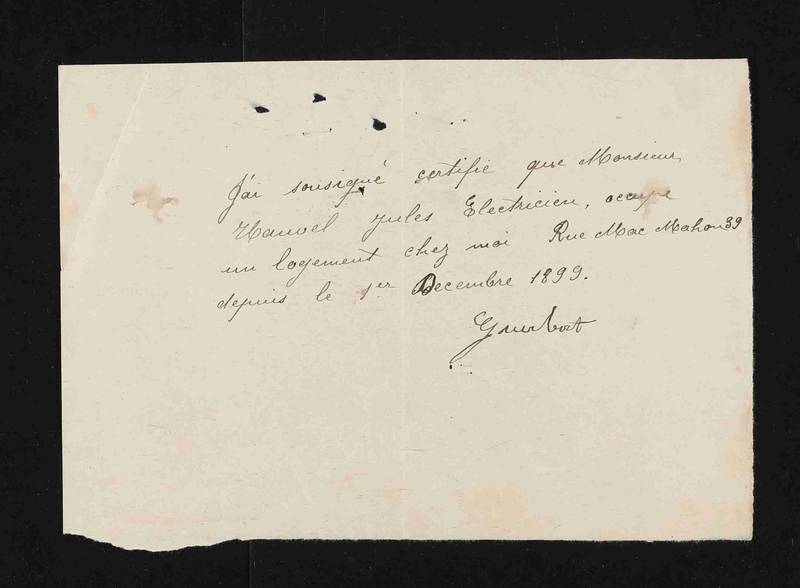 J'ai sousigné certifie que Monsieur
Hanvel Jules Electricien, occupe
un logement chez moi Rue Mac Mahon 39
depuis le 1er Decembre 1899.